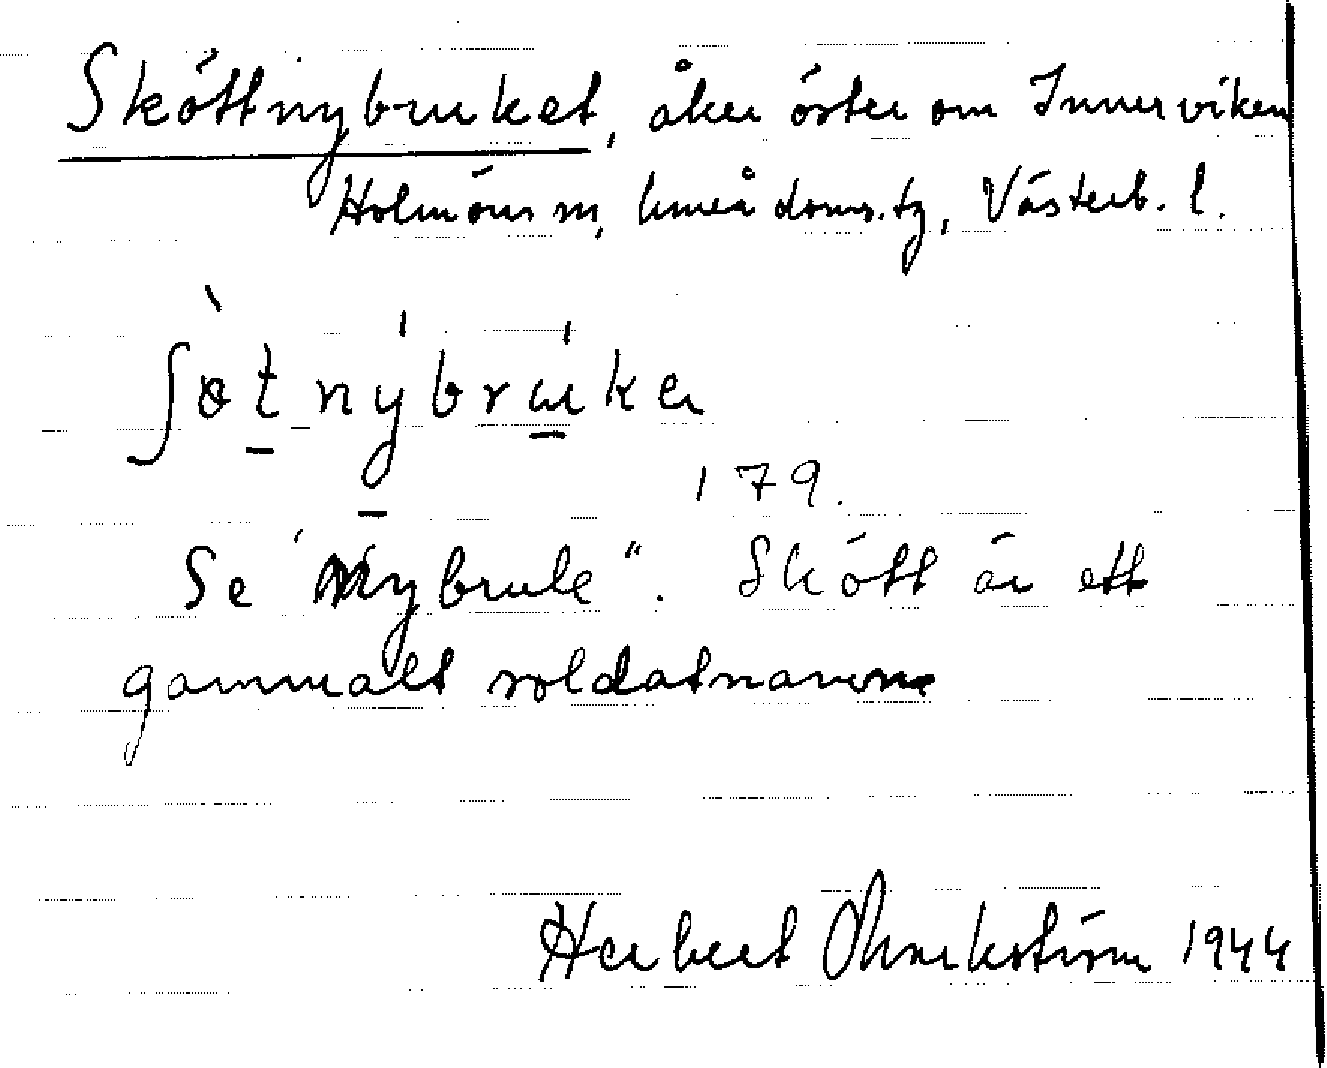 Sköttnybruket, åker öster om Innerviken
Holmöns sn, Umeå doms. tg, Västerb. l.
179.
Se "Nybruk". Skött är ett
gammalt soldatnamn
Herbert 1944